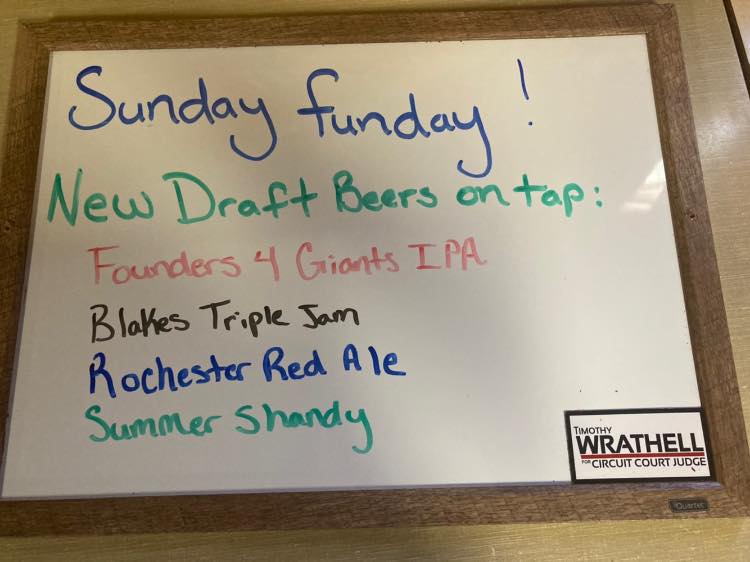 Sunday funday!
New Draft Beers on tap:
Founders 4 Giants IPA
Blakes Triple Jam
Rochester Red Ale
Summer Shandy
TIMOTHY
WRATHELL
FOR CIRCUIT COURT JUDGE
Quartet